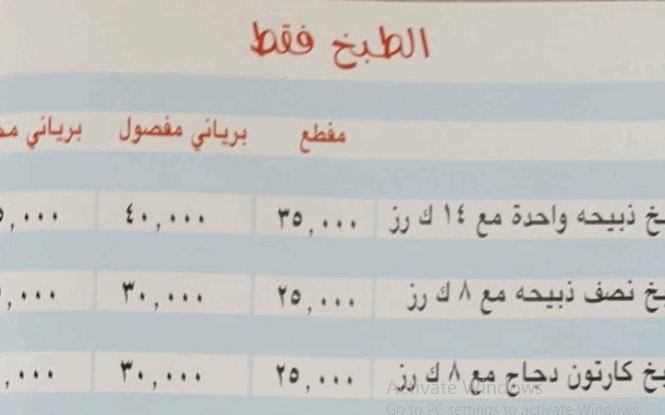 الطبخ فقط
مقطع برياني مفصول برياني
ذبيحه واحدة مع ١٤ ك رز ٣٥,٠٠٠ ٤٠,٠٠٠ ,٠٠٠
نصف ذبيحه مع ٨ ك رز ٢٥,٠٠٠ ٣٠,٠٠٠ ,٠٠٠
كارتون دجاج مع ٨ ك رز ٢٥,٠٠٠ ٣٠,٠٠٠ ,٠٠٠
Activate Windows
Go to PC settings to activate Windows.